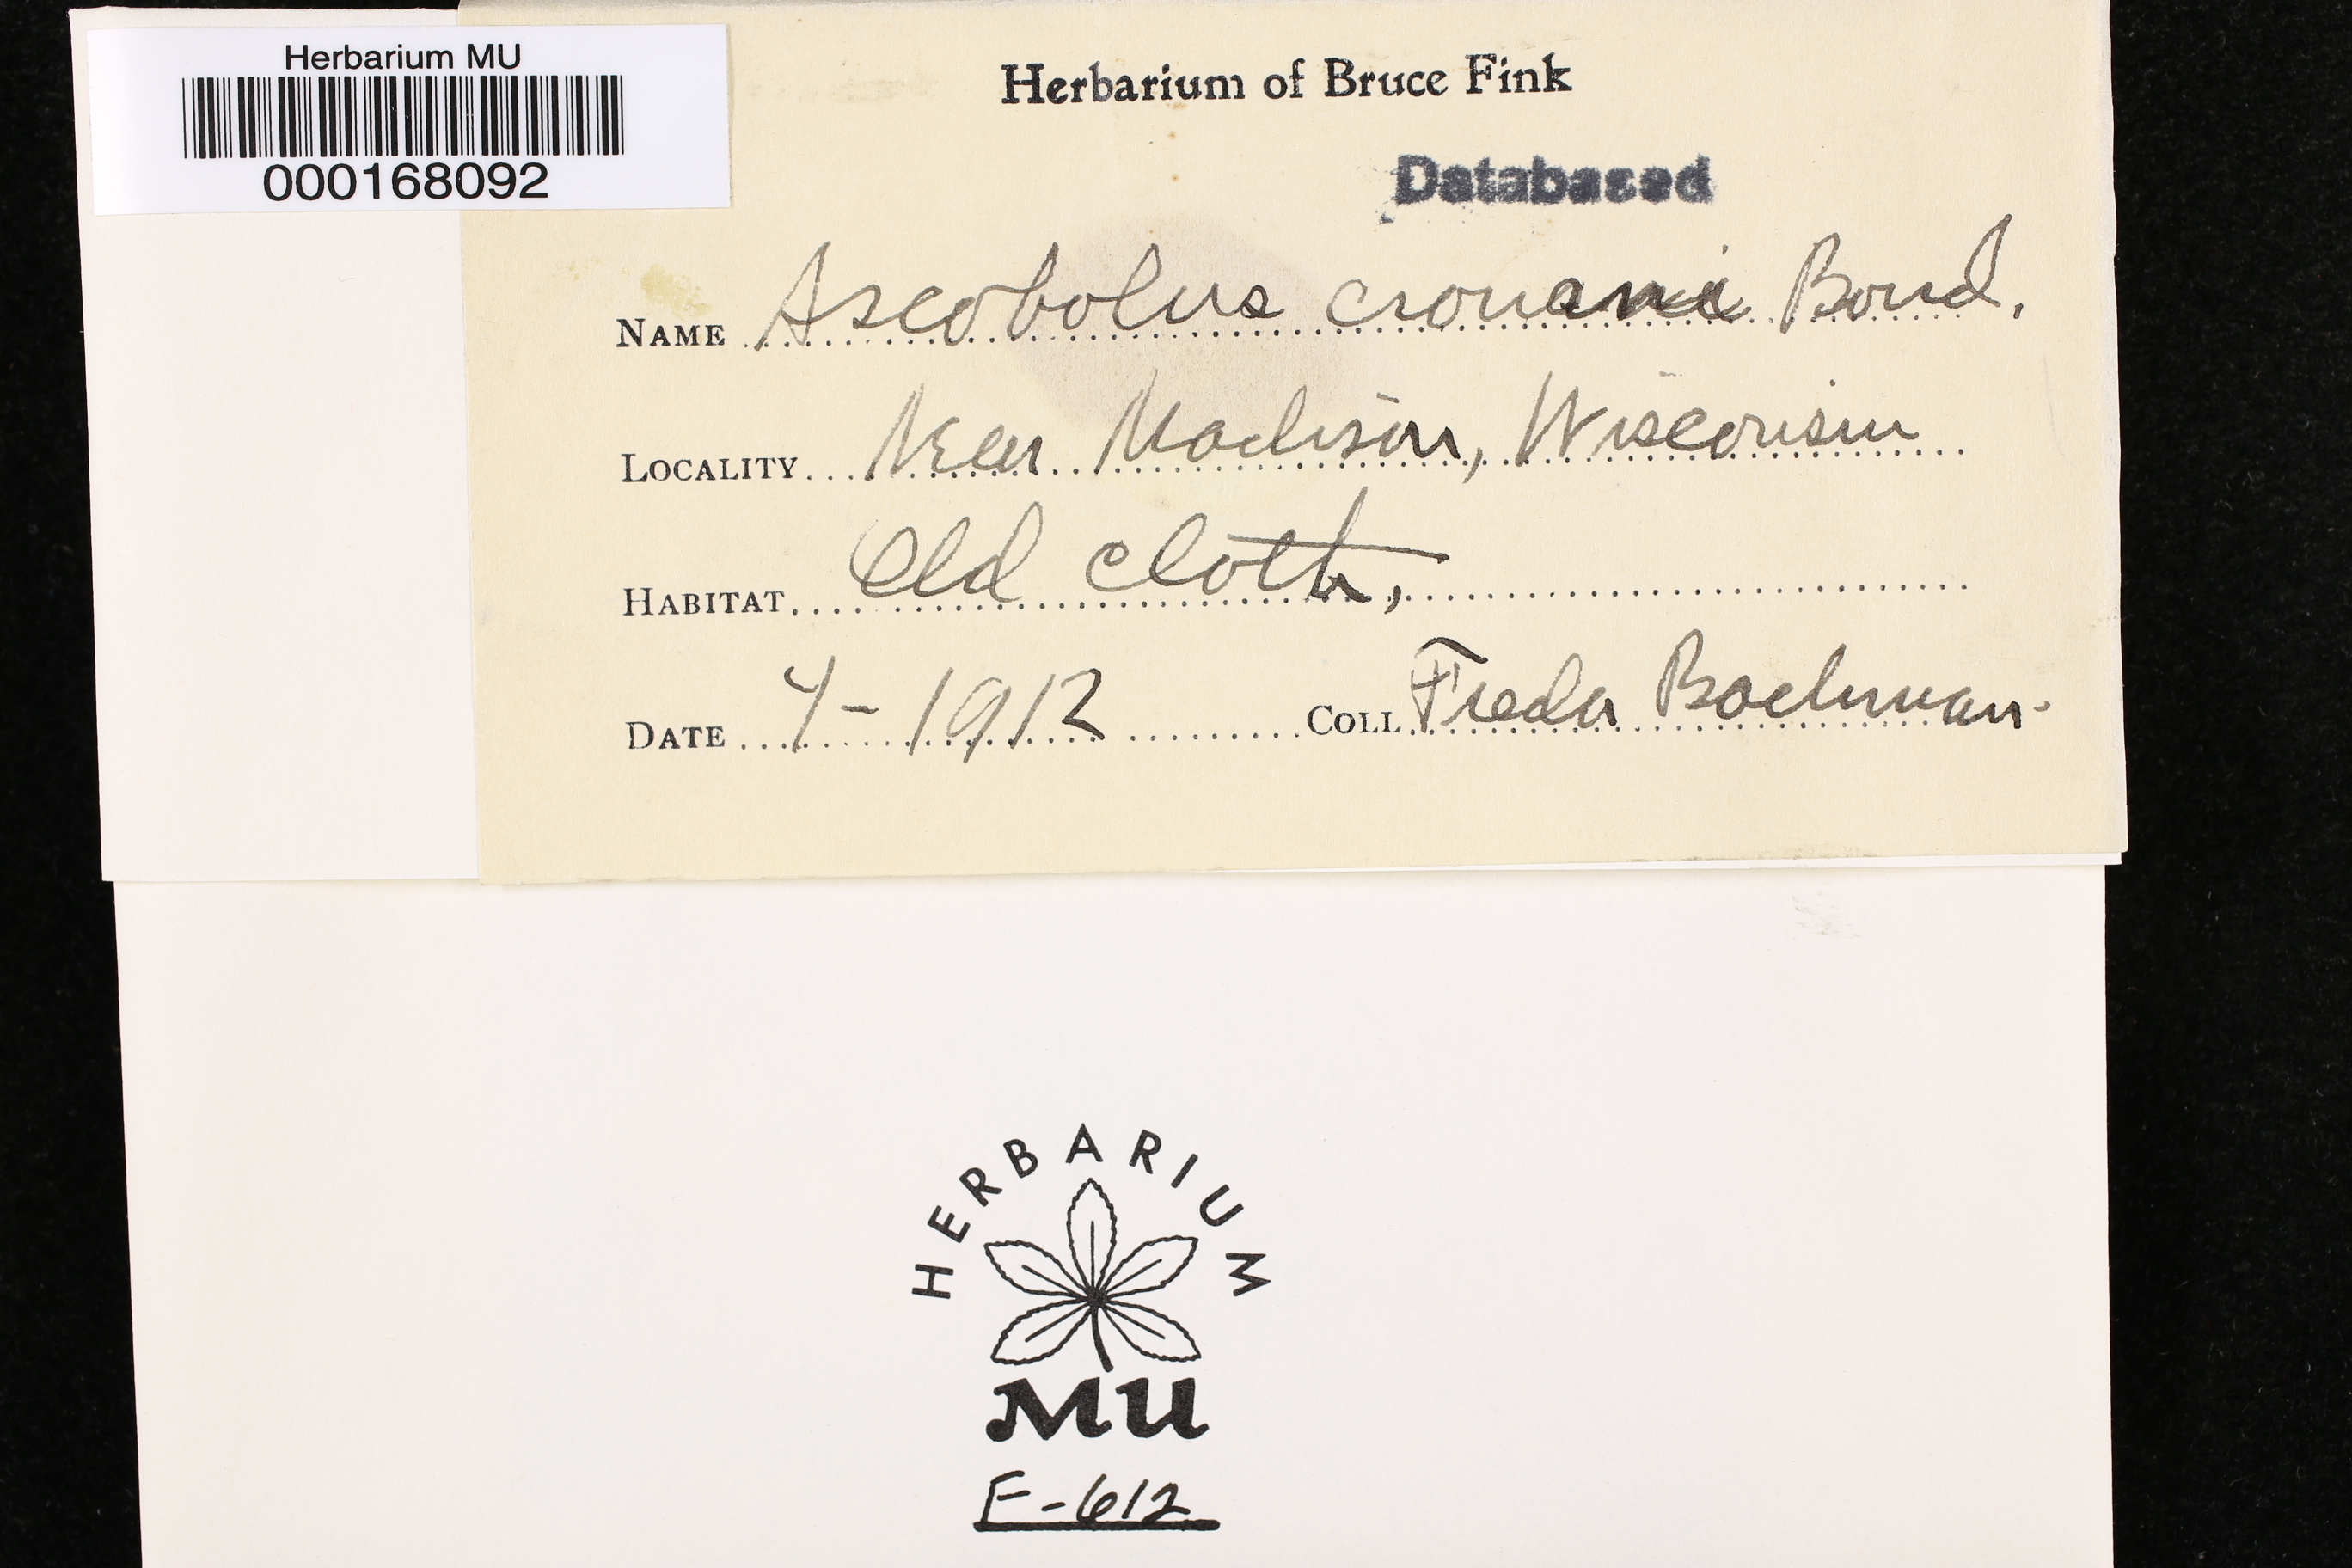 Herbarium MU
000168092
Herbarium of Bruce Fink
Databased
NAME Ascobolus crouani Boud.
LOCALITY Near Madison, Wisconsin
HABITAT Old cloth,
DATE 4-1912 COLL Freda Bachman.
HERBARIUM
MU
F-612